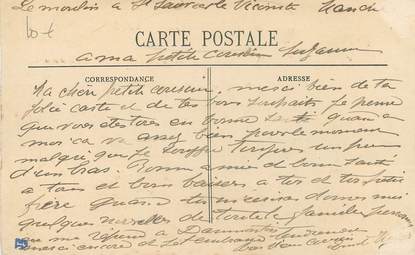 Le moulin à St Sauveur le Vicomte Manche
60 f
CARTE POSTALE
a ma petite cousine Suzanne
CORRESPONDANCE
ADRESSE
Ma chère petite cousine, merci bien de ta
jolie carte et de tes bons souhaits je pense
que vous êtes tous en bonne santé quand a
moi ca va assez bien pour le moment
malgré que je souffre toujours un peu
d'un bras. Bonne année et bonne santé
a tous et bons baisers a toi et ton petit
frère quand tu m'écriras donnes moi
quelques nouvelles de toute la famille
on me répond a
merci encore et je t'embrasse tendrement
Ton cousin